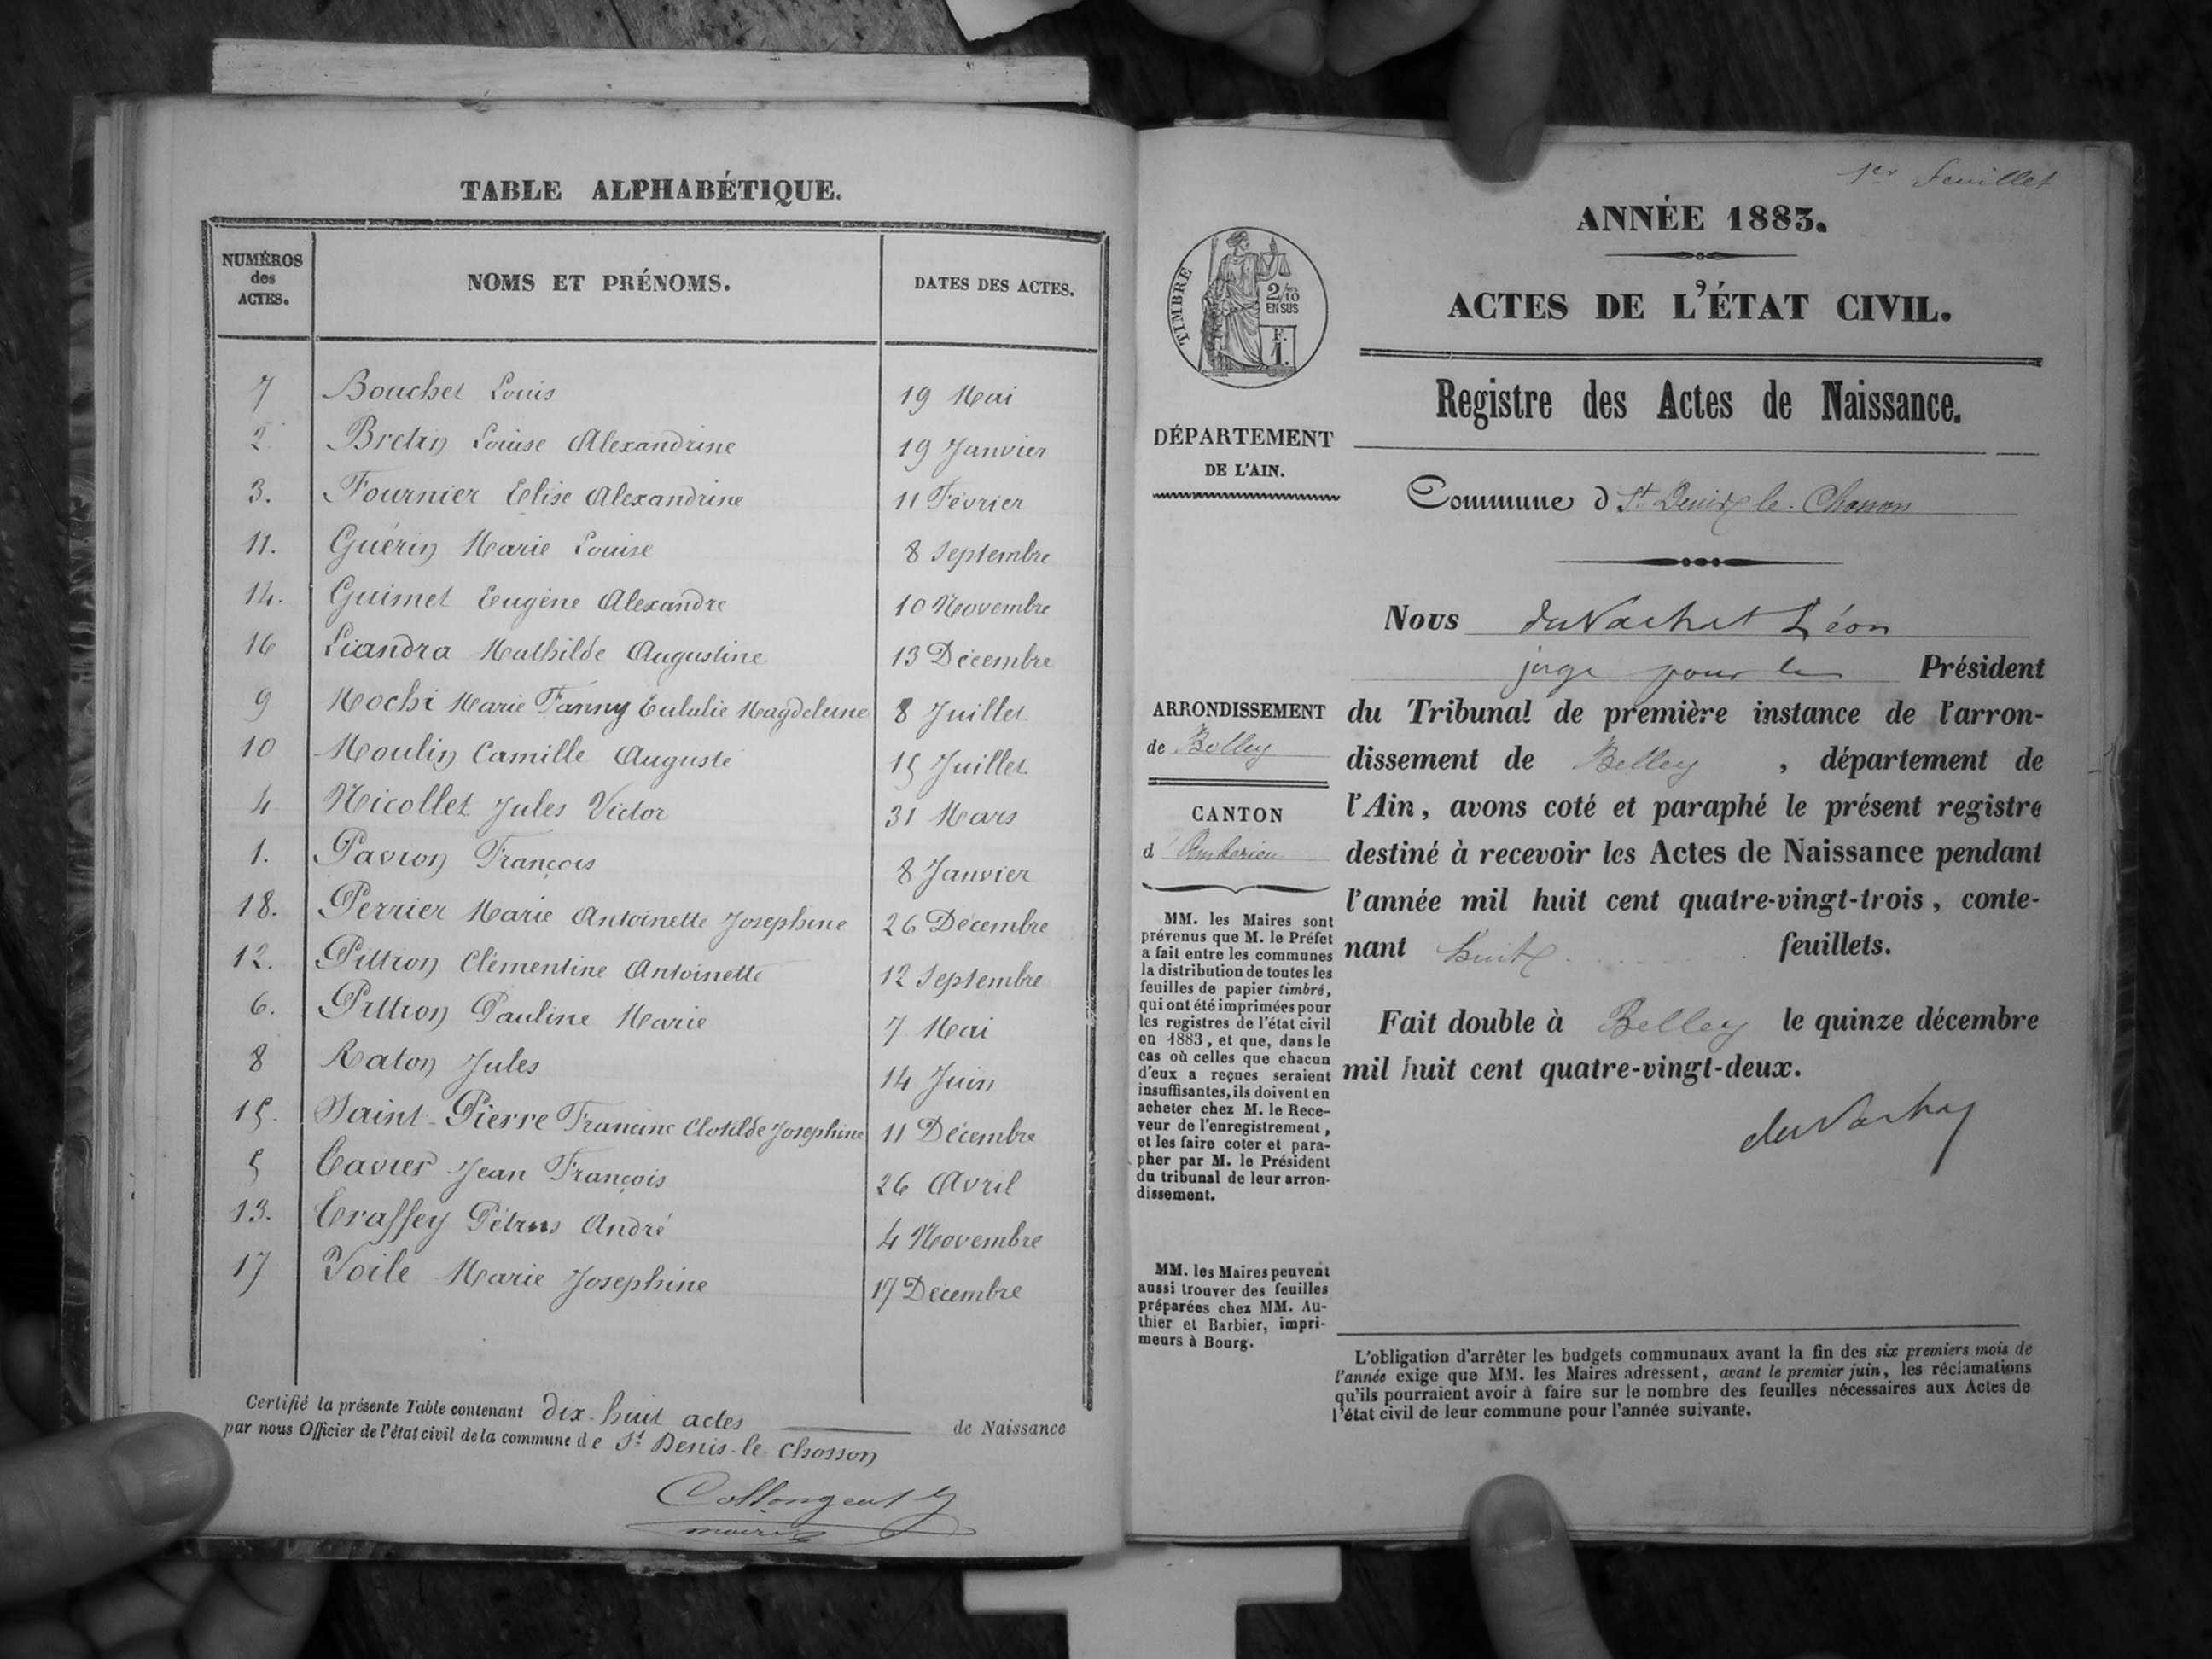 TABLE ALPHABÉTIQUE.
NUMÉROS des ACTES. NOMS ET PRÉNOMS. DATES DES ACTES.
7 Bouchet Louis 19 Mai
2 Bretin Louise Alexandrine 19 Janvier
3. Fournier Elise Alexandrine 11 Février
11. Guérin Marie Louise 8 Septembre
14. Guimet Eugène Alexandre 10 Novembre
16 Liandra Mathilde Augustine 13 Décembre
9 Mochi Marie Fanny Eulalie Magdeleine 8 Juillet
10 Moulin Camille Auguste 15 Juillet
4 Nicollet Jules Victor 31 Mars
1. Pavron François 8 Janvier
18. Perrier Marie Antoinette Josephine 26 Décembre
12. Pittion Clémentine Antoinette 12 Septembre
6. Pittion Pauline Marie 7 Mai
8 Raton Jules 14 Juin
15. Saint-Pierre Francine Clotilde Josephine 11 Décembre
5 Tavier Jean François 26 Avril
13. Traffey Pétrus André 4 Novembre
17 Voile Marie Josephine 17 Décembre
Certifié la présente Table contenant dix-huit actes de Naissance
par nous Officier de l'état civil de la commune de St Denis-le-Chosson
maire
1er feuillet
ANNÉE 1883.
ACTES DE L'ÉTAT CIVIL.
Registre des Actes de Naissance.
TIMBRE
2/10
EN SUS
F.
1.
DÉPARTEMENT
DE L'AIN.
Commune d St Denis le-Chosson
Nous duVachat Léon
juge pour le Président
du Tribunal de première instance de l'arron-
dissement de Belley, département de
l'Ain, avons coté et paraphé le présent registre
destiné à recevoir les Actes de Naissance pendant
l'année mil huit cent quatre-vingt-trois, conte-
nant huit feuillets.
Fait double à Belley le quinze décembre
mil huit cent quatre-vingt-deux.
duVachat
ARRONDISSEMENT
de Belley
CANTON
d'Ambérieu
MM. les Maires sont
prévenus que M. le Préfet
a fait entre les communes
la distribution de toutes les
feuilles de papier timbré,
qui ont été imprimées pour
les registres de l'état civil
en 1883, et que, dans le
cas où celles que chacun
d'eux a reçues seraient
insuffisantes, ils doivent en
acheter chez M. le Rece-
veur de l'enregistrement,
et les faire coter et para-
pher par M. le Président
du tribunal de leur arron-
dissement.
MM. les Maires peuvent
aussi trouver des feuilles
préparées chez MM. Au-
thier et Barbier, impri-
meurs à Bourg.
L'obligation d'arrêter les budgets communaux avant la fin des six premiers mois de
l'année exige que MM. les Maires adressent, avant le premier juin, les réclamations
qu'ils pourraient avoir à faire sur le nombre des feuilles nécessaires aux Actes de
l'état civil de leur commune pour l'année suivante.